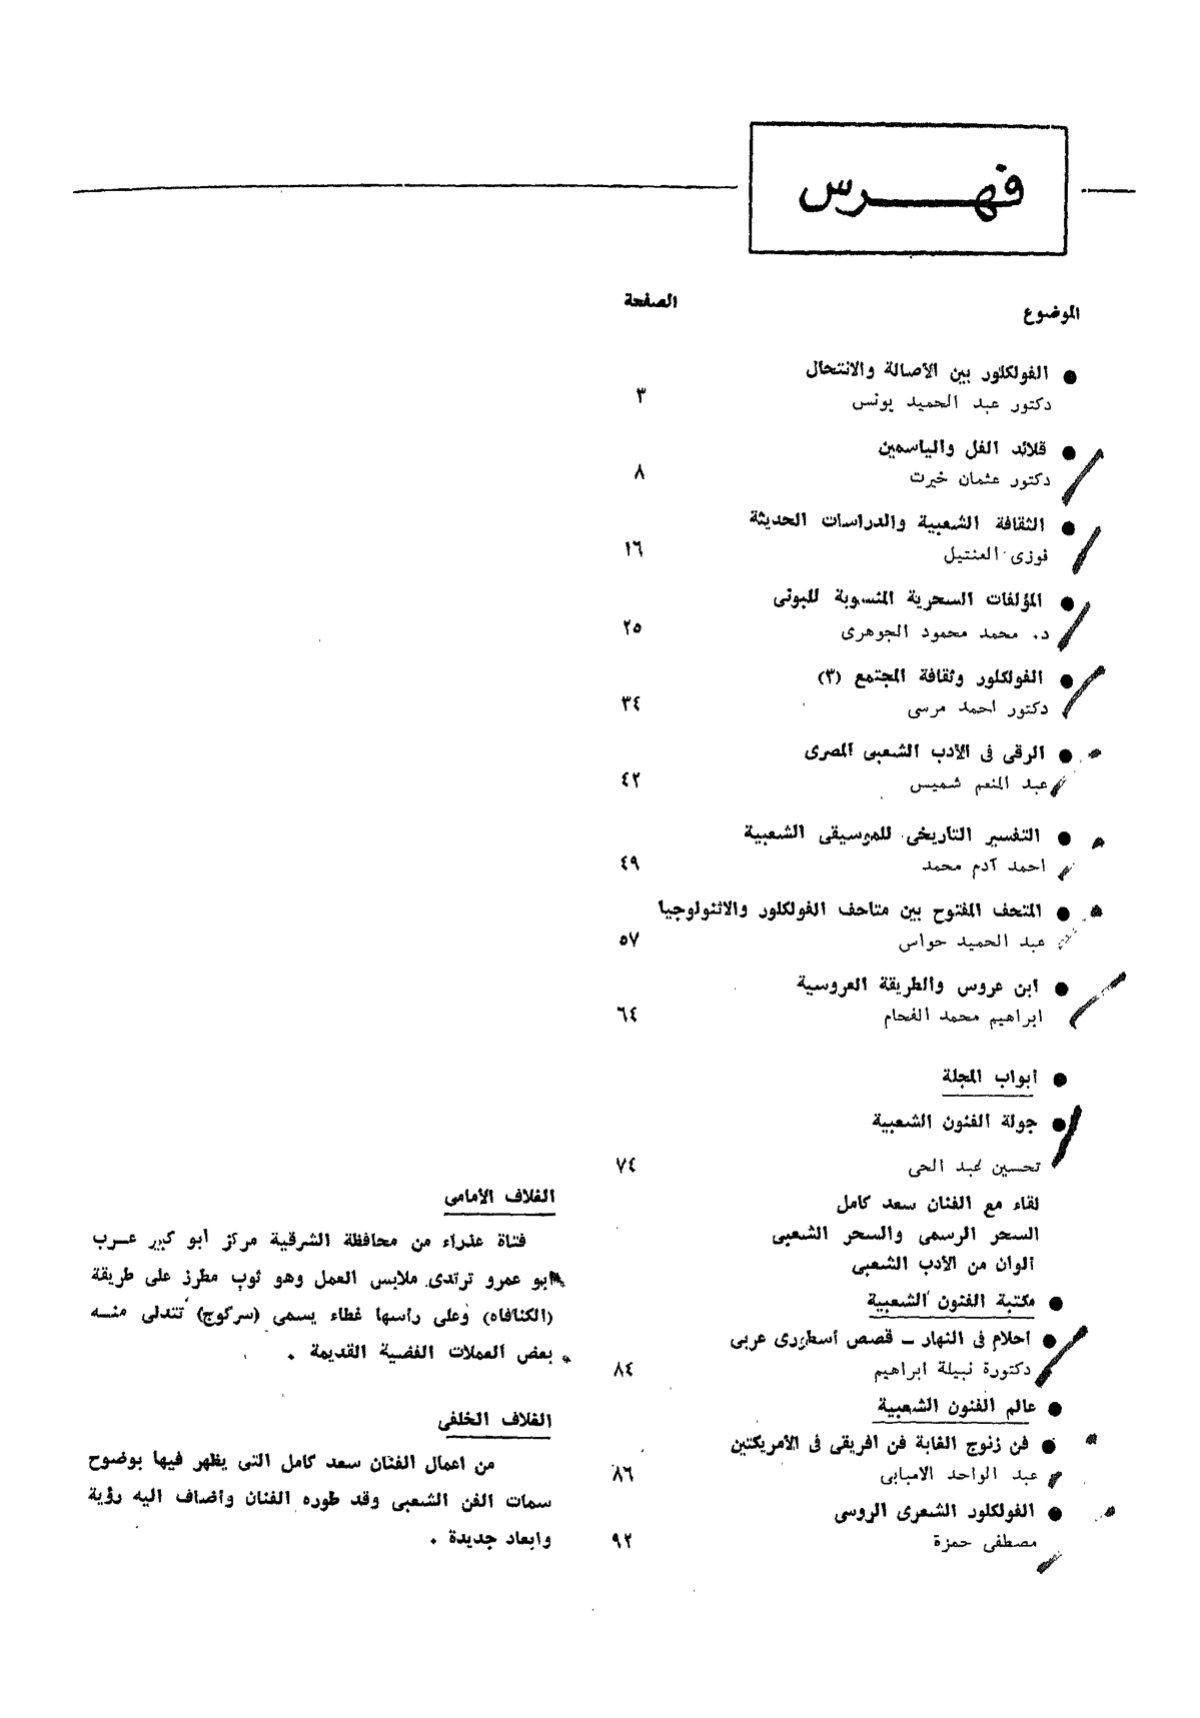 فهرس
الموضوع
الصفحة
● الفولكلور بين الأصالة والانتحال
دكتور عبد الحميد يونس
٣
● قلائد الفل والياسمين
دكتور عثمان خيرت
٨
● الثقافة الشعبية والدراسات الحديثة
فوزى العنتيل
١٦
● المؤلفات السحرية المنسوبة للبونى
د. محمد محمود الجوهرى
٢٥
● الفولكلور وثقافة المجتمع (٣)
دكتور احمد مرسى
٣٤
● الرقى فى الأدب الشعبى المصرى
عبد المنعم شميس
٤٢
● التفسير التاريخى للموسيقى الشعبية
احمد آدم محمد
٤٩
● المتحف المفتوح بين متاحف الفولكلور والاثنولوجيا
عبد الحميد حواس
٥٧
● ابن عروس والطريقة العروسية
ابراهيم محمد الفحام
٦٤
● أبواب المجلة
● جولة الفنون الشعبية
تحسين عبد الحى
٧٤
لقاء مع الفنان سعد كامل
السحر الرسمى والسحر الشعبى
الوان من الأدب الشعبى
● مكتبة الفنون الشعبية
● أحلام فى النهار ــ قصص أسطورى عربى
دكتورة نبيلة ابراهيم
٨٤
● عالم الفنون الشعبية
● فن زنوج الغابة فن افريقى فى الأمريكتين
عبد الواحد الامبابى
٨٦
● الفولكلور الشعرى الروسى
مصطفى حمزة
٩٢
الغلاف الأمامى
فتاة عذراء من محافظة الشرقية مركز أبو كبير عــرب
أبو عمرو ترتدى ملابس العمل وهو ثوب مطرز على طريقة
(الكنافاه) وعلى رأسها غطاء يسمى (سركوج) تتدلى منــه
بعض العملات الفضية القديمة .
الغلاف الخلفى
من اعمال الفنان سعد كامل التى يظهر فيها بوضوح
سمات الفن الشعبى وقد طوره الفنان وأضاف اليه رؤية
وابعاد جديدة .